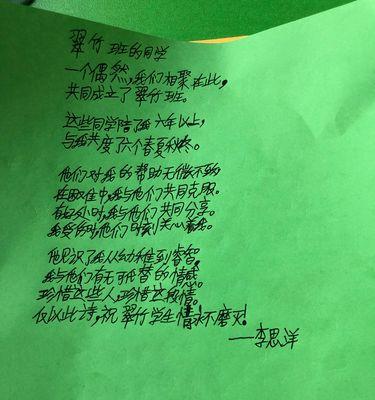 翠竹班的同学
一个偶然,我们相聚在此,
共同成立了翠竹班。
这些同学陪了我六年以上,
与我共度了六个春夏秋冬。
他们对我的帮助无微不至
在困难中,我与他们共同克服。
有好处时,我与他们共同分享。
我受伤时,他们时刻关心着我。
他见识了我从幼稚到睿智,
我与他们有无可代替的情感。
珍惜这些人,珍惜这段情。
仅以此诗,祝翠竹学生情永不磨灭!
——李思洋